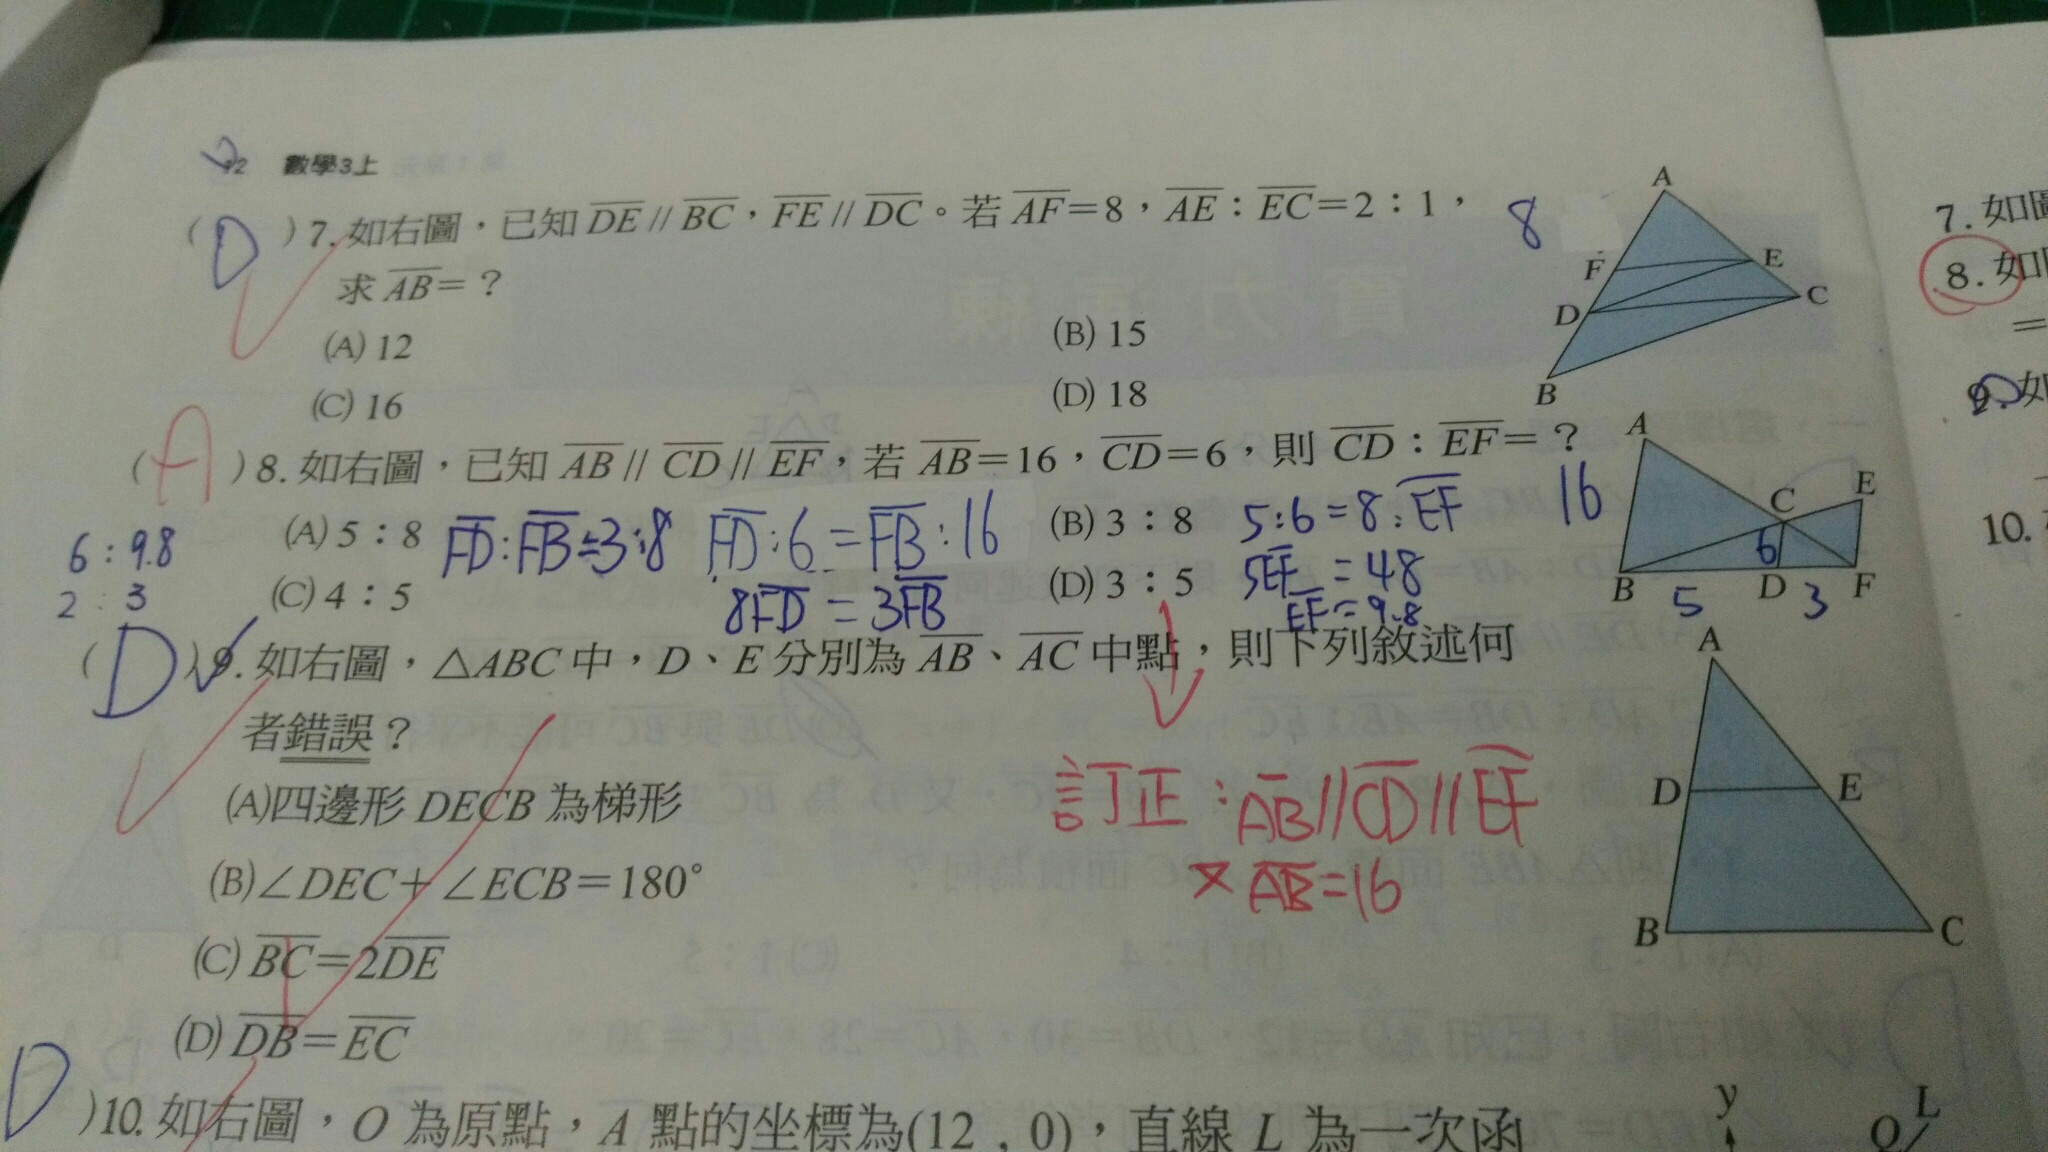 12 數學3上
( D ) 7. 如右圖，已知 DE // BC，FE // DC。若 AF=8，AE：EC=2：1， 8
求 AB=？
(A) 12 (B) 15
(C) 16 (D) 18
A F E D C B
( A ) 8. 如右圖，已知 AB // CD // EF，若 AB=16，CD=6，則 CD：EF=？
(A) 5：8 (B) 3：8
(C) 4：5 (D) 3：5
FD:FB=3:8 FD:6=FB:16
8FD=3FB
5:6=8:EF
5EF=48
EF=9.8
6:9.8
2:3
16 A C E 6 B D F 5 3
訂正：AB//CD//EF
AB=16
( D ) 9. 如右圖，△ABC 中，D、E 分別為 AB、AC 中點，則下列敘述何
者錯誤？
(A)四邊形 DECB 為梯形
(B)∠DEC+∠ECB=180°
(C) BC=2DE
(D) DB=EC
A D E B C
D )10. 如右圖，O 為原點，A 點的坐標為(12 , 0)，直線 L 為一次函
y L Q
7. 如
8. 如
=
9. 如
10.